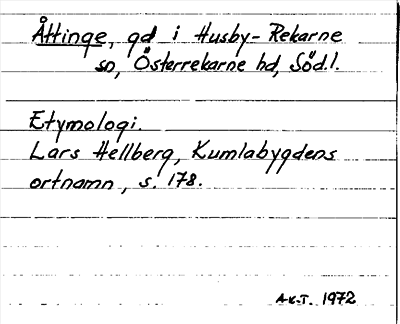 Åttinge, gd i Husby-Rekarne
sn, Österrekarne hd, Södl.
Etymologi.
Lars Hellberg, Kumlabygdens
ortnamn, s. 178.
A.K.T. 1972